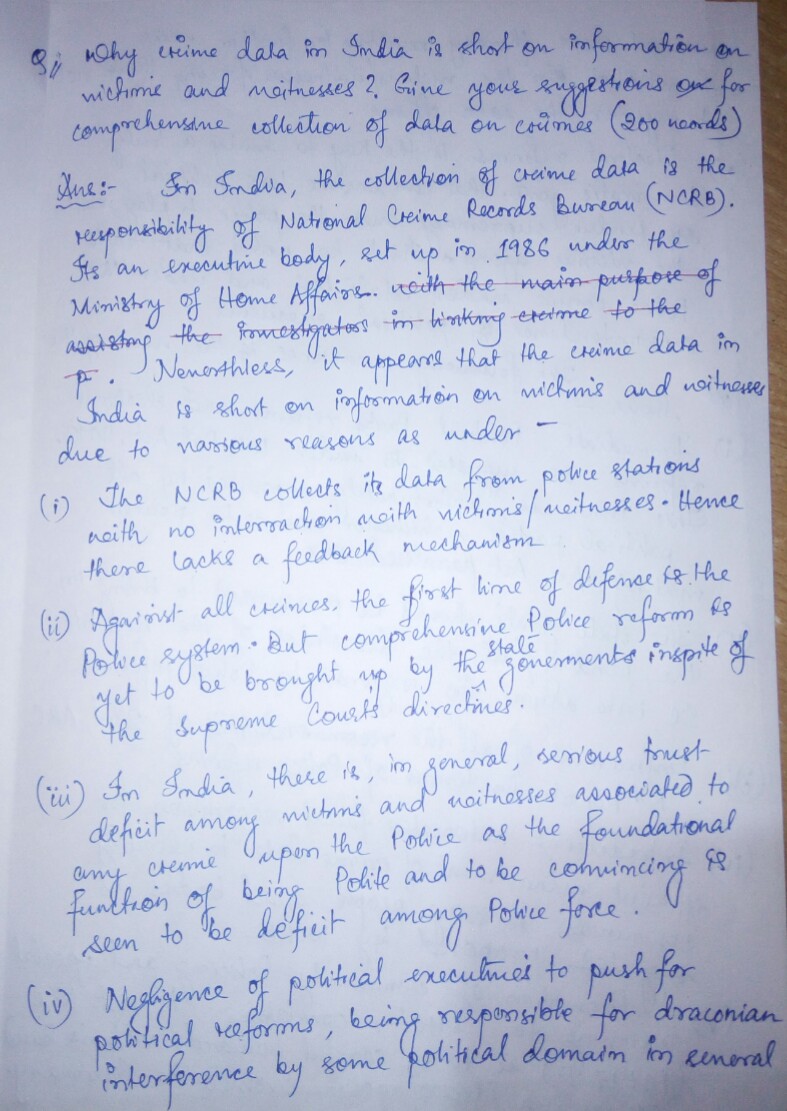 Q;, Why crime data in India is short on information on
victims and witnesses? Give your suggestions on for
comprehensive collection of data on crimes (200 words)
Ans:- In India, the collection of crime data is the
responsibility of National Crime Records Bureau (NCRB).
Its an executive body, set up in 1986 under the
Ministry of Home Affairs. with the main purpose of
assisting the investigators in linking crime to the
p. Neverthless, it appears that the crime data in
India is short on information on victims and witnesses
due to various reasons as under -
(i) The NCRB collects its data from police stations
with no interraction with victims/witnesses. Hence
there lacks a feedback mechanism
(ii) Against all crimes, the first line of defense is the
Police system. But comprehensive Police reform is
yet to be brought up by the state governments inspite of
the Supreme Court's directives.
(iii) In India, there is, in general, serious trust
deficit among victims and witnesses associated to
any crime upon the Police as the foundational
function of being Polite and to be convincing is
seen to be deficit among Police force.
(iv) Negligence of political executives to push for
political reforms, being responsible for draconian
interference by some political domain in several